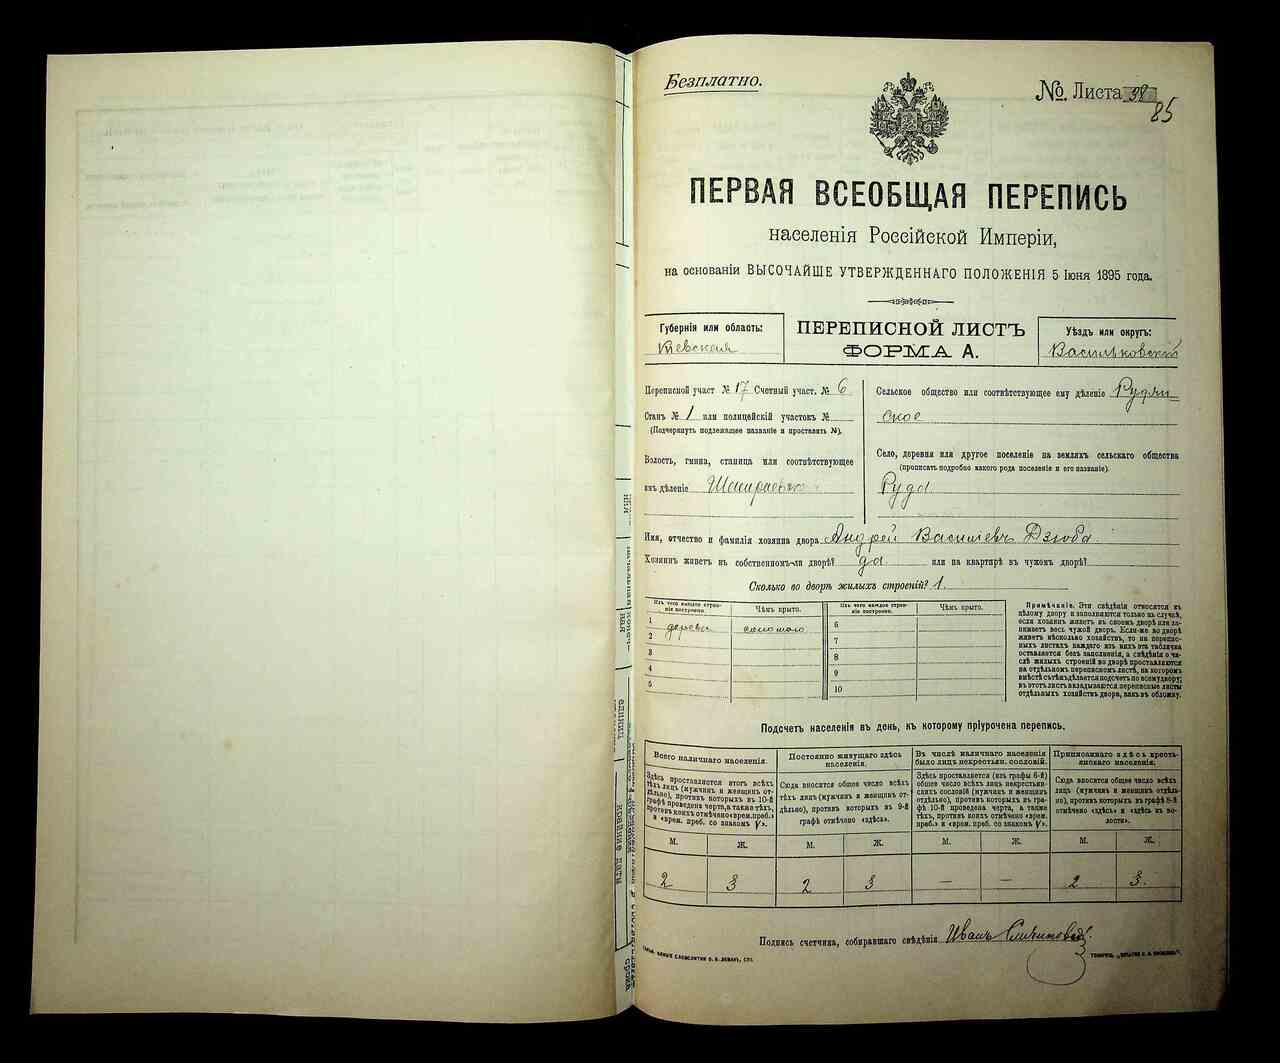 Безплатно.
№ Листа 38
85
ПЕРВАЯ ВСЕОБЩАЯ ПЕРЕПИСЬ
населенія Россійской Имперіи,
на основаніи ВЫСОЧАЙШЕ УТВЕРЖДЕННАГО ПОЛОЖЕНІЯ 5 Іюня 1895 года.
Губернія или область:
Кіевская
ПЕРЕПИСНОЙ ЛИСТЪ
ФОРМА А.
Уѣздъ или округъ:
Васильковскій
Переписной участ № 17 Счетный участ. № 6
Станъ № 1 или полицейскій участокъ №
(Подчеркнуть подлежащее названіе и проставить №).
Волость, гмина, станица или соотвѣтствующее
имъ дѣленіе
Сельское общество или соотвѣтствующее ему дѣленіе Рудян-
ское
Село, деревня или другое поселеніе на земляхъ сельскаго общества
(прописать подробно какого рода поселеніе и его названіе).
Руда
Имя, отчество и фамилія хозяина двора Андрей Васильевъ Дзюба.
Хозяинъ живетъ въ собственномъ-ли дворѣ? да или на квартирѣ въ чужомъ дворѣ?
Сколько во дворѣ жилыхъ строеній? 1.
Изъ чего каждое строе-
ніе построено.
Чѣмъ крыто.
1 дерева соломою
2
3
4
5
Изъ чего каждое строе-
ніе построено.
Чѣмъ крыто.
6
7
8
9
10
Примѣчаніе. Эти свѣдѣнія относятся къ
цѣлому двору и заполняются только въ случаѣ,
если хозяинъ живетъ въ своемъ дворѣ или за-
нимаетъ весь чужой дворъ. Если-же во дворѣ
живетъ нѣсколько хозяйствъ, то на перепис-
ныхъ листахъ каждаго изъ нихъ эта табличка
оставляется безъ заполненія, а свѣдѣнія о чи-
слѣ жилыхъ строеній во дворѣ проставляются
на отдѣльномъ переписномъ листѣ, на которомъ
вмѣстѣ съ тѣмъ дѣлается подсчетъ по всему двору;
въ этотъ листъ вкладываются переписные листы
отдѣльныхъ хозяйствъ двора, какъ въ обложку.
Подсчетъ населенія въ день, къ которому пріурочена перепись.
Всего наличнаго населенія.
Здѣсь проставляется итогъ всѣхъ
тѣхъ лицъ (мужчинъ и женщинъ от-
дѣльно), противъ которыхъ въ 10-й
графѣ проведена черта, а также тѣхъ,
противъ коихъ отмѣчено «врем. преб.»
и «врем. преб. со знакомъ V».
Постоянно живущаго здѣсь
населенія.
Сюда вносится общее число всѣхъ
тѣхъ лицъ (мужчинъ и женщинъ от-
дѣльно), противъ которыхъ въ 9-й
графѣ отмѣчено «здѣсь».
Въ числѣ наличнаго населенія
было лицъ некрестьян. сословій.
Здѣсь проставляется (изъ графы 6-й)
общее число всѣхъ лицъ некрестьян-
скихъ сословій (мужчинъ и женщинъ
отдѣльно), противъ которыхъ въ гра-
фѣ 10-й проведена черта, а также
тѣхъ, противъ коихъ отмѣчено «врем.
преб.» и «врем. преб. со знакомъ V».
Приписаннаго здѣсь кресть-
янскаго населенія.
Сюда вносится общее число всѣхъ
лицъ (мужчинъ и женщинъ отдѣль-
но), противъ которыхъ въ графѣ 8-й
отмѣчено «здѣсь» и «здѣсь въ во-
лости».
М. Ж. М. Ж. М. Ж. М. Ж.
2 3 2 3 — — 2 3.
Подпись счетчика, собиравшаго свѣдѣнія Иванъ